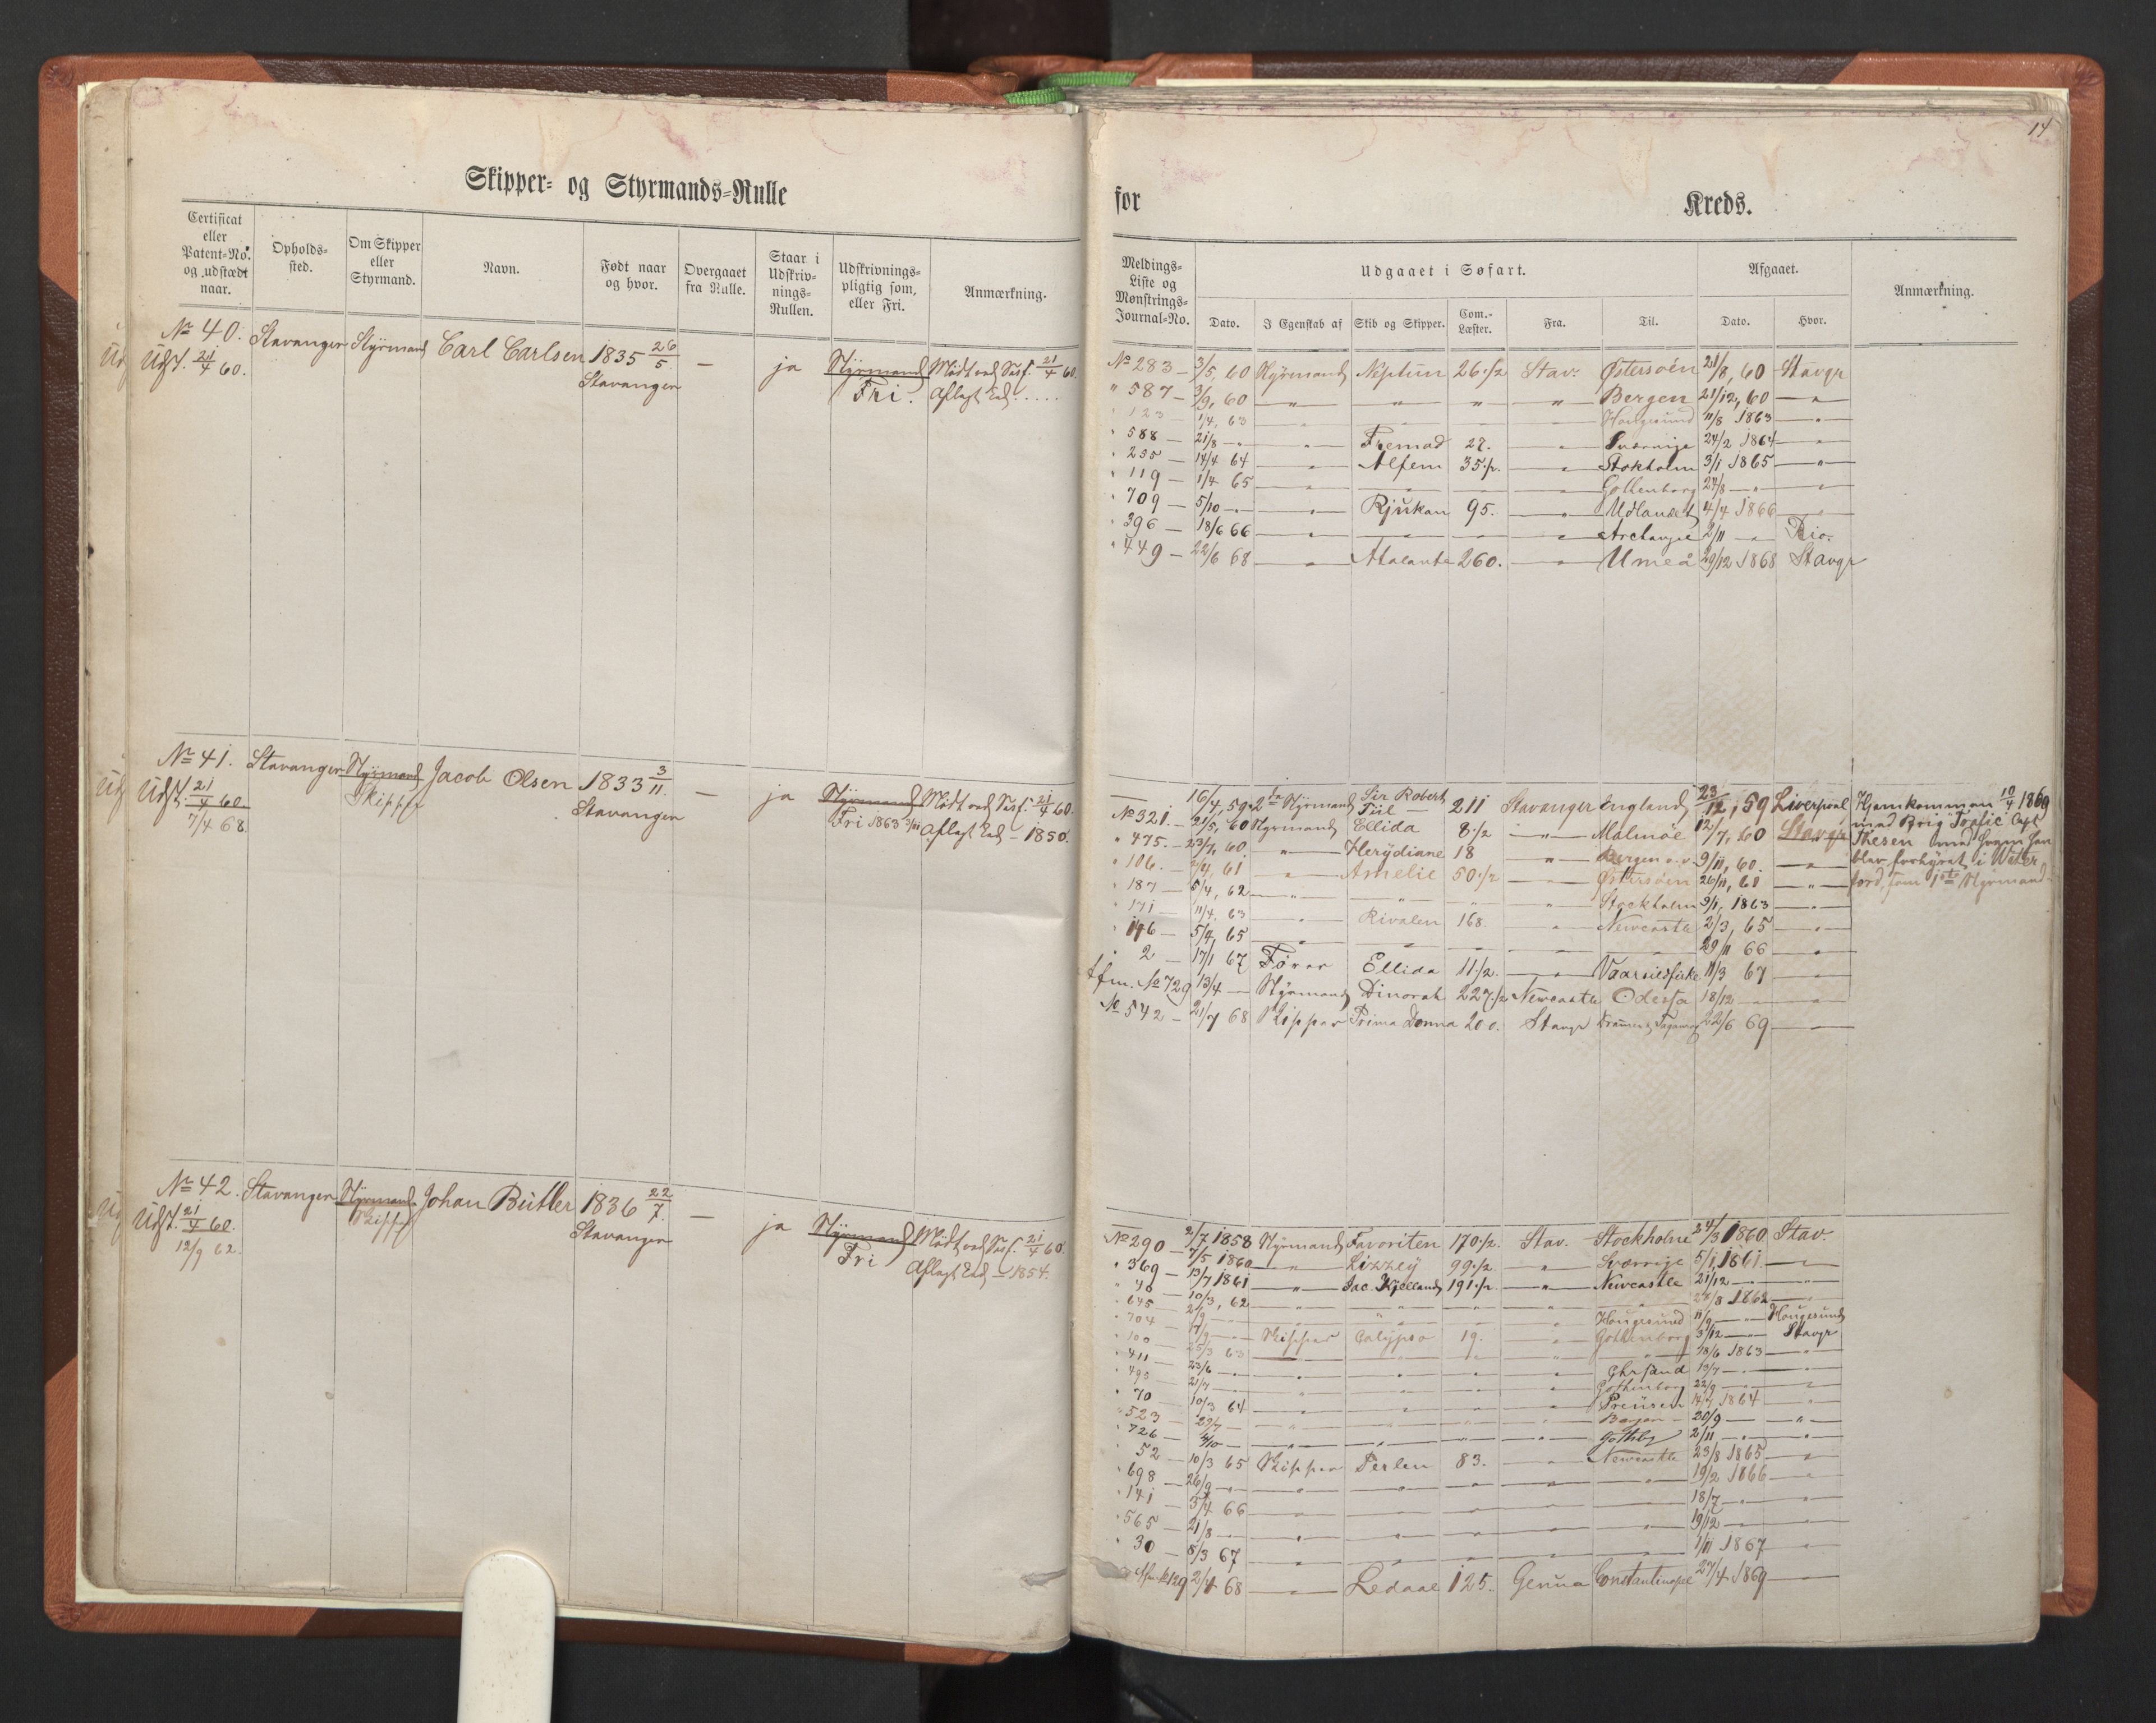 14
Skipper- og Styrmands-Rulle
for Kreds.
Certificat eller Patent-No. og udstædt naar.
Opholds-sted.
Om Skipper eller Styrmand.
Navn.
Født naar og hvor.
Overgaaet fra Rulle.
Staar i Udskriv-nings-Rullen.
Udskrivnings-pligtig som, eller Fri.
Anmærkning.
Meldings-Liste og Mønstrings-Journal-No.
Udgaaet i Søfart.
Dato.
I Egenskab af
Skib og Skipper.
Com.-Læster.
Fra.
Til.
Afgaaet.
Dato.
Hvor.
Anmærkning.
No 40. Stavanger Styrmand Carl Carlsen 1835 26/5 — ja Styrmand Mødt ved Sess. 21/4 60.
Udst. 21/4 60. Stavanger Fri. Aflagt Eed.....
No 283 — 3/5, 60 Styrmand Neptun 26.1/2 Stav. Østersøen 21/8, 60 Stavgr
" 587 — 3/9, 60 — " — " — " — " — Bergen 21/12, 60 — " —
" 123 — 1/4, 63 — " — Hougesund 11/8 1863 — " —
" 588 — 21/8 — " — " — Fremad 27. — " — Sverrige 24/2 1864 — " —
" 235 — 14/4 64 — " — Alfen 35.1/2 — " — Stokholm 3/1 1865 — " —
" 119 — 1/4 65 — " — Gothenborg 27/8 — " — " —
" 709 — 5/10 — " — " — Rjukan 95. — " — Udlandet 4/4 1866 — " —
" 396 — 18/6 66 — " — Archangel 2/11 — " — Rio.
" 449 — 22/6 68 — " — Atalante 260. — " — Umeå 29/12 1868 Stavgr
No 41. Stavanger Styrmand Jacob Olsen 1833 3/11. — ja Styrmand Mødt ved Sess. 21/4 60.
Udst. 21/4 60. Skipper Stavanger Fri 1863 Aflagt Eed — 1850.
7/4 68.
16/4, 59. 2den Styrmand Sir Robert Piil 211 Stavanger England 23/12, 59 Liverpool Hjemkommen 10/4 1860
No 321. — 21/5, 60 Styrmand Ellida 8.1/2 — " — Malmøe 12/7, 60 Stavgr med Brig Capt.
" 475. — 23/7, 60. — " — 18 — " — Bergen 9/11, 60. — " — Thesen med hvem han
" 106. — 2/4, 61 — " — Amelie 50.1/2 — " — Østersøen 26/11, 61 — " — blev forhyret i Water
" 187 — 5/4, 62 — " — " — " — Stockholm 9/1. 1863 — " — ford, som 1ste Styrmand
" 171 — 11/4. 63 — " — Rivalen 168. — " — Newcastle 2/3, 65 — " —
" 146 — 5/4, 65 — " — 29/11 66 — " —
" 2 — 17/1 67 Fører Ellida 11.1/2. — " — Vaarsildfiske 11/3 67 — " —
No 729 13/4 — Styrmand Dinorah 227.1/2 Newcastle Odessa 18/12 — " —
No 542 — 21/7 68 Skipper Prima Donna 200. Stavgr 22/6 69. — " —
No 42. Stavanger Styrmand Johan Butler 1836 22/7. — ja Styrmand Mødt ved Sess. 21/4 60.
Udst. 21/4 60. Skipper Stavanger Fri Aflagt Eed — 1854.
12/9 62.
2/7 1858 Styrmand Favoriten 170.1/2. Stav. Stockholm 24/3 1860 Stav.
No 290 — 7/5 1860 — " — Lizzley 99.1/2. — " — Sverrige 5/1, 1861. — " —
" 369 — 13/7 1861 — " — Jac. Kjelland 191.1/2. — " — Newcastle 21/12 — " —
" 40 — 10/3, 62 — " — 1862 — " —
" 645 — 2/9 — " — Hougesund 11/9 — " — Hougesund
" 704 — 17/9 — Skipper Calypso 19. — " — Gothenborg 3/12 — Stavgr
" 100 — 25/3 63 — " — 18/6 1863 — " —
" 411 — 23/6 — " — Chrsand 13/7 — " —
" 495 — 21/7 — " — Gothenborg 22/9 — " —
" 70 — 10/3 64 — " — Preusen 14/7 1864 — " —
" 523 — 29/7 — " — Bergen — 20/9 — " —
" 726 — 4/10 — " — Gothbg 2/11 — " —
" 52 — 10/3 65 Skipper Perlen 83. — " — Newcastle 23/8 1865 — " —
" 698 — 26/9 — " — 19/2 1866 — " —
" 141 — 3/4 66 — " — 18/7 — " —
" 565 — 21/8 — " — 19/12 — " —
" 30 — 8/3 67 — " — 1/11 1867 — " —
129 2/4 68 — " — Ledaal 125. Genua Constantinopel 27/4 1869 — " —